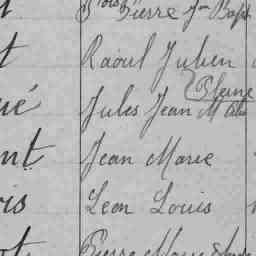 t. Pierre Jn Bapt
t Raoul Julien
Pleine
ué Jules Jean M
nt Jean Marie
is Leon Louis
Pierre Marie